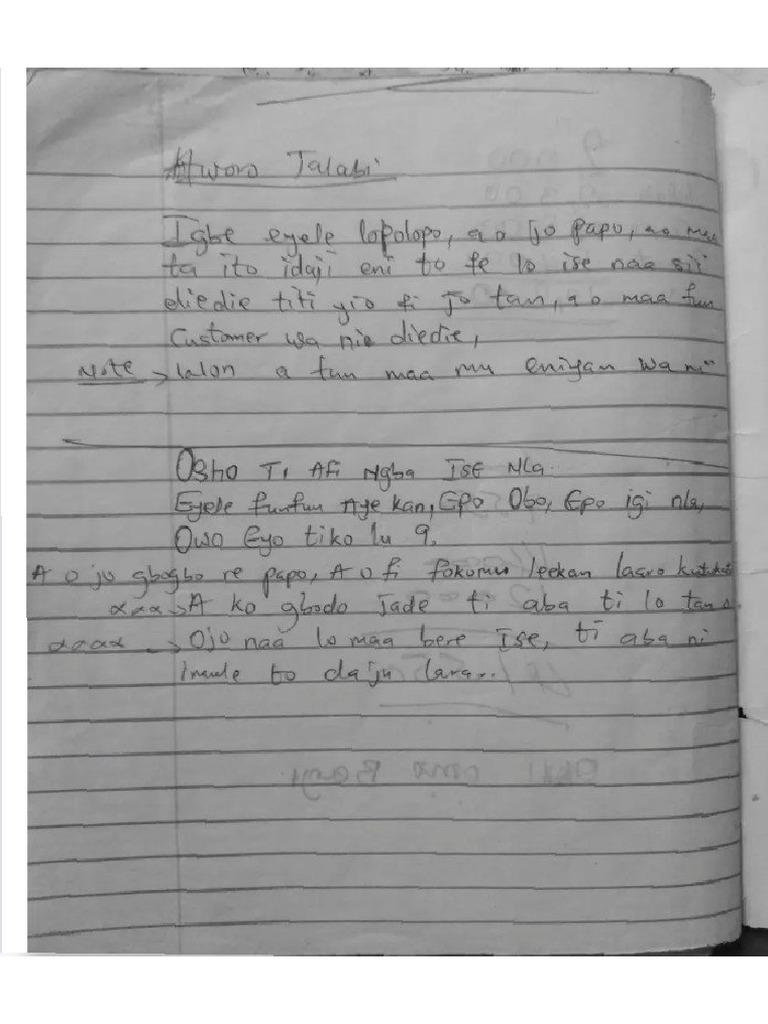 Aworo Jalabi
Igbe eyele lopolopo, ao jo papo, ao maa
ta ito idaji eni to fe lo ise naa sii
diedie titi yio fi jo tan, ao maa fun
Customer wa nie diedie,
Note → lalon a fun maa mu eniyan wa ni
Osho Ti Afi Ngba Ise Nla.
Eyele funfun Aye kan, Epo Obo, Epo igi nla,
Owo Eyo tiko lu 9.
A o jo gbogbo re papo, A o fi fokomu leekan laaro
xxx → A ko gbodo jade ti aba ti lo tan.
xxxx → Ojo naa lo maa bere Ise, ti aba ni
to daju lara..